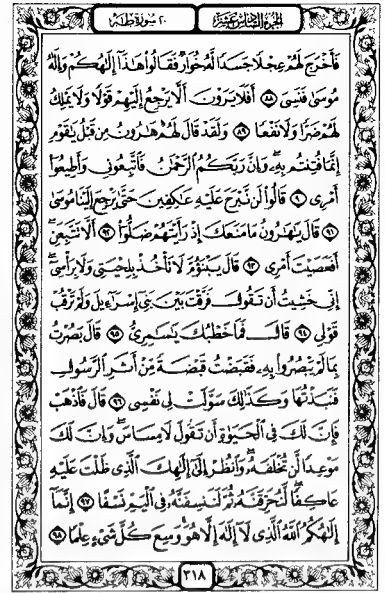 الجزء السادس عشر
٢٠ سورة طه
فَأَخْرَجَ لَهُمْ عِجْلًا جَسَدًا لَّهُ خُوَارٌ فَقَالُوا۟ هَٰذَآ إِلَٰهُكُمْ وَإِلَٰهُ
مُوسَىٰ فَنَسِىَ ٨٨ أَفَلَا يَرَوْنَ أَلَّا يَرْجِعُ إِلَيْهِمْ قَوْلًا وَلَا يَمْلِكُ
لَهُمْ ضَرًّا وَلَا نَفْعًا ٨٩ وَلَقَدْ قَالَ لَهُمْ هَٰرُونُ مِن قَبْلُ يَٰقَوْمِ
إِنَّمَا فُتِنتُم بِهِۦ وَإِنَّ رَبَّكُمُ ٱلرَّحْمَٰنُ فَٱتَّبِعُونِى وَأَطِيعُوٓا۟
أَمْرِى ٩٠ قَالُوا۟ لَن نَّبْرَحَ عَلَيْهِ عَٰكِفِينَ حَتَّىٰ يَرْجِعَ إِلَيْنَا مُوسَىٰ
٩١ قَالَ يَٰهَٰرُونُ مَا مَنَعَكَ إِذْ رَأَيْتَهُمْ ضَلُّوٓا۟ ٩٢ أَلَّا تَتَّبِعَنِ
أَفَعَصَيْتَ أَمْرِى ٩٣ قَالَ يَبْنَؤُمَّ لَا تَأْخُذْ بِلِحْيَتِى وَلَا بِرَأْسِىٓ
إِنِّى خَشِيتُ أَن تَقُولَ فَرَّقْتَ بَيْنَ بَنِىٓ إِسْرَٰٓءِيلَ وَلَمْ تَرْقُبْ
قَوْلِى ٩٤ قَالَ فَمَا خَطْبُكَ يَٰسَٰمِرِىُّ ٩٥ قَالَ بَصُرْتُ
بِمَا لَمْ يَبْصُرُوا۟ بِهِۦ فَقَبَضْتُ قَبْضَةً مِّنْ أَثَرِ ٱلرَّسُولِ
فَنَبَذْتُهَا وَكَذَٰلِكَ سَوَّلَتْ لِى نَفْسِى ٩٦ قَالَ فَٱذْهَبْ
فَإِنَّ لَكَ فِى ٱلْحَيَوٰةِ أَن تَقُولَ لَا مِسَاسَ وَإِنَّ لَكَ
مَوْعِدًا لَّن تُخْلَفَهُۥ وَٱنظُرْ إِلَىٰٓ إِلَٰهِكَ ٱلَّذِى ظَلْتَ عَلَيْهِ
عَاكِفًا لَّنُحَرِّقَنَّهُۥ ثُمَّ لَنَنسِفَنَّهُۥ فِى ٱلْيَمِّ نَسْفًا ٩٧ إِنَّمَآ
إِلَٰهُكُمُ ٱللَّهُ ٱلَّذِى لَآ إِلَٰهَ إِلَّا هُوَ وَسِعَ كُلَّ شَىْءٍ عِلْمًا ٩٨
٣١٨